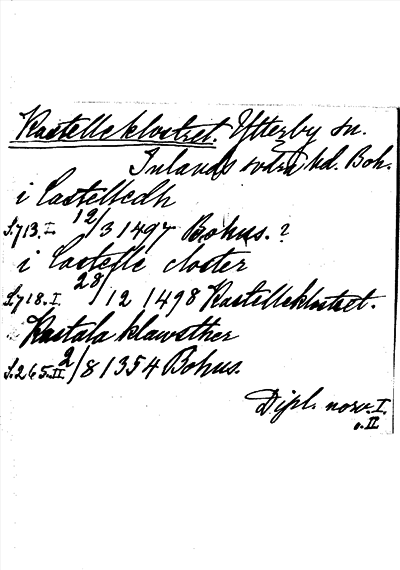 Kastelleklostret. Ytterby sn.
Inlands södra hd. Boh.
i Castelledh
S.713.I 12/3 1497 Bohus.?
i Castelle closter
S.718.I. 28/12 1498 Kastelleklostret.
Kastala klawsther
S.265.II 2/8 1354 Bohus.
Dipl. norv. I.
o. II